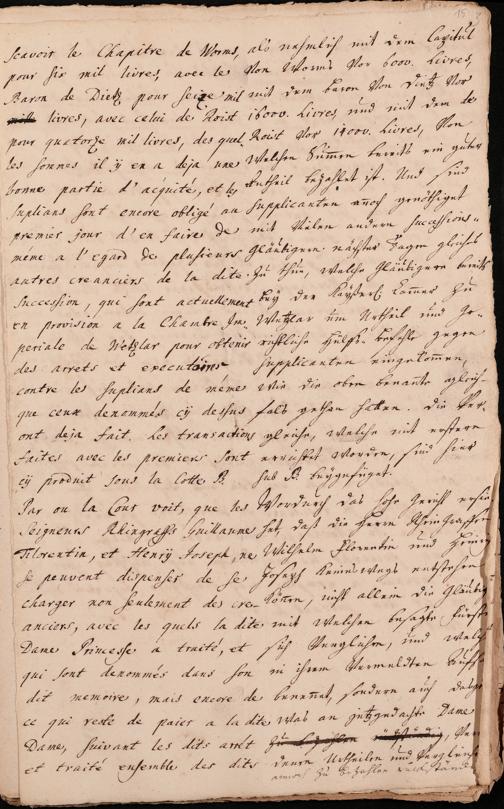 15
scavoir le Chapitre de Worms,
pour six mil livres, avec le
Baron de Dietz pour seize mil
livres, avec celui de Roist
pour quatorze mil livres, des quel
les sommes il ÿ en a deja une
bonne partie d'acquité, et les
suplians sont encore obligé au
premier jour d'en faires de
meme a l'egard de plusieurs
autres creanciers de la dite
succession, qui sont actuellement
en provision a la Chambre Im-
periale de Wetzlar pour obtenir
des arrets et executoires
contre les suplians de meme
que ceux denommés cÿ dessus
ont deja fait. Les transactions
faites avec les premiers sont
cÿ produit sous la Cotte B.
Par ou la Cour voit, que les
Seigneurs Rhingraffs Guillaume
Florentin, et Henry Joseph, ne
se peuvent dispenser de se
charger non seulement des cre-
anciers, avec les quels la dite
Dame Princesse a traité, et
qui sont denommés dans son
dit memoire, mais encore de
ce qui reste de paier a la dite
Dame, suivant les dits arrêt
et traité ensemble des dits
als nehmlich mit dem Capitul
von Worms vor 6000. Livres,
mit dem baron von Dietz vor
16000. Livres, und mit dem de
Roist vor 14000. Livres, von
welchen Summen bereits ein guter
Antheil bezahlet ist. Und sind
supplicanten annoch genöthiget
mit vielen andern successions-
Gläubigern nächster Tagen gleiches
zu thun, welche Gläubigere bereits
beÿ der Kaÿserl. Cammer zu
Wetzlar um Urtheil und
hülffs befehle gegen
supplicanten eingekommen,
wie die oben benante gleich-
fals gethan hetten. Die Ver-
gleiche, welche mit erstern
errichtet worden, sind hier
sub B. beÿgefüget.
Wordurch das hohe Gericht
daß die Herrn Rheingraffen
Wilhelm Florentin und Henrich
Joseph keines wegs entstehen
könten, nicht allein die Gläubig
mit welchen besagte Fürstin
sich verglichen, und welche
in ihrem vermeldten
benennet, sondern auch dasjen
was an jetzgedachte Dame
deren Urtheilen und Vergleich
annoch zu bezahlen rückständ